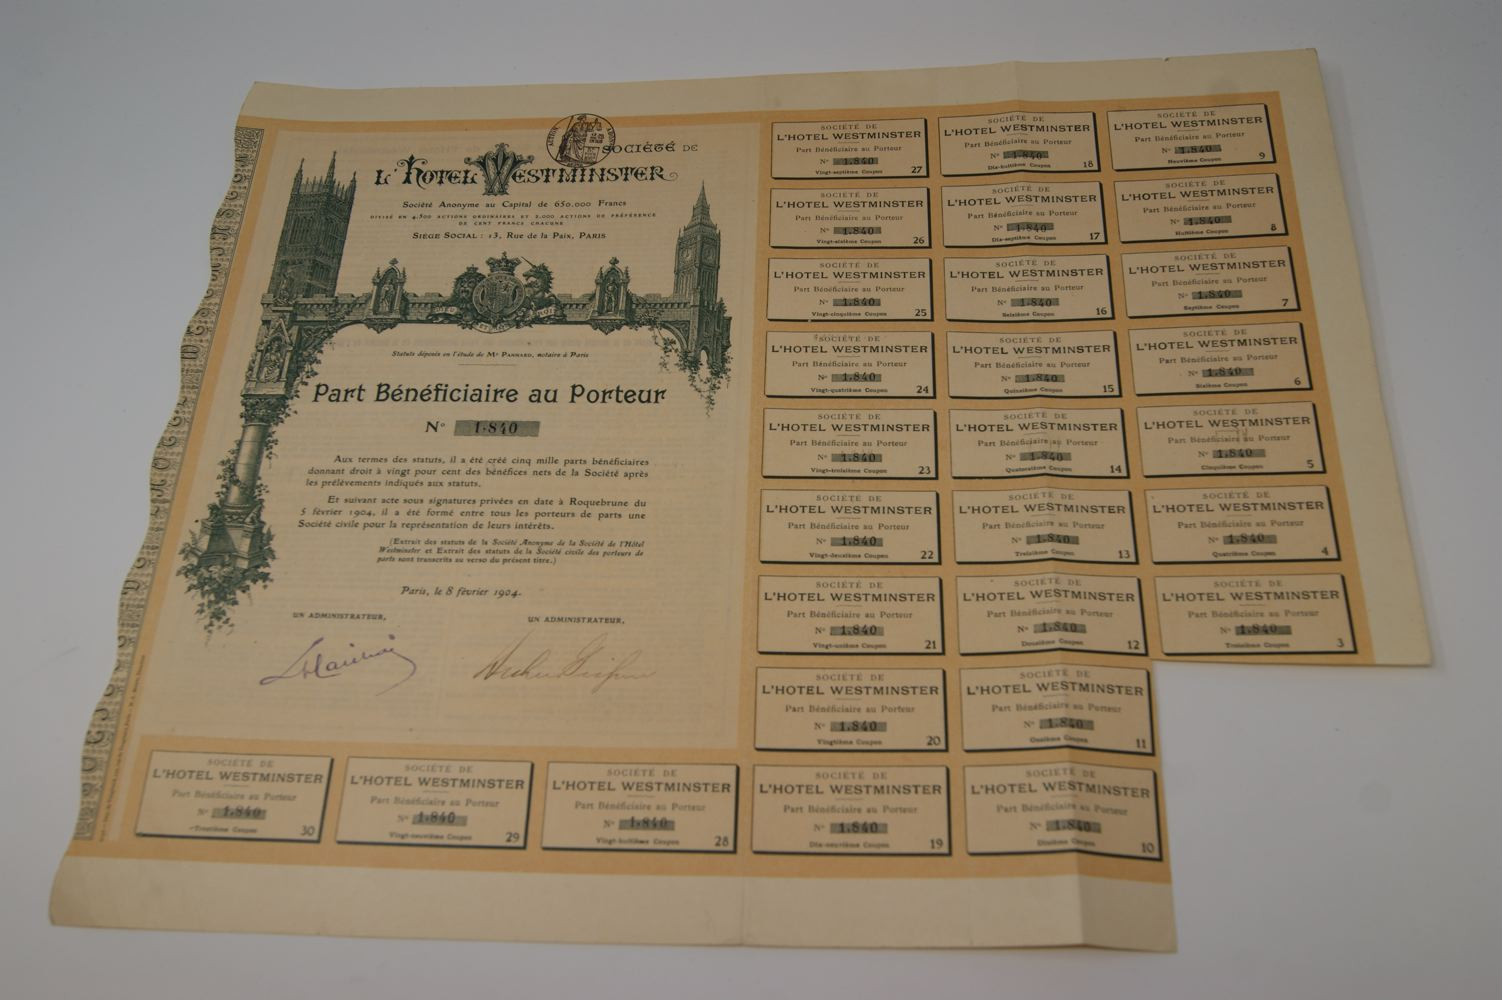 SOCIÉTÉ DE
L'HOTEL WESTMINSTER
Société Anonyme au Capital de 650.000 Francs
DIVISÉ EN 4.500 ACTIONS ORDINAIRES ET 2.000 ACTIONS DE PRÉFÉRENCE
DE CENT FRANCS CHACUNE
SIÈGE SOCIAL : 13, Rue de la Paix, PARIS
Statuts déposés en l'étude de Me PANHARD, notaire à Paris
Part Bénéficiaire au Porteur
No 1.840
Aux termes des statuts, il a été créé cinq mille parts bénéficiaires
donnant droit à vingt pour cent des bénéfices nets de la Société après
les prélèvements indiqués aux statuts.
Et suivant acte sous signatures privées en date à Roquebrune du
5 février 1904, il a été formé entre tous les porteurs de parts une
Société civile pour la représentation de leurs intérêts.
(Extrait des statuts de la Société Anonyme de la Société de l'Hôtel
Westminster et Extrait des statuts de la Société civile des porteurs de
parts sont transcrits au verso du présent titre.)
Paris, le 8 février 1904.
UN ADMINISTRATEUR,
UN ADMINISTRATEUR,
SOCIÉTÉ DE
L'HOTEL WESTMINSTER
Part Bénéficiaire au Porteur
No 1.840
Vingt-septième Coupon 27
SOCIÉTÉ DE
L'HOTEL WESTMINSTER
Part Bénéficiaire au Porteur
No 1.840
Dix-huitième Coupon 18
SOCIÉTÉ DE
L'HOTEL WESTMINSTER
Part Bénéficiaire au Porteur
No 1.840
Neuvième Coupon 9
SOCIÉTÉ DE
L'HOTEL WESTMINSTER
Part Bénéficiaire au Porteur
No 1.840
Vingt-sixième Coupon 26
SOCIÉTÉ DE
L'HOTEL WESTMINSTER
Part Bénéficiaire au Porteur
No 1.840
Dix-septième Coupon 17
SOCIÉTÉ DE
L'HOTEL WESTMINSTER
Part Bénéficiaire au Porteur
No 1.840
Huitième Coupon 8
SOCIÉTÉ DE
L'HOTEL WESTMINSTER
Part Bénéficiaire au Porteur
No 1.840
Vingt-cinquième Coupon 25
SOCIÉTÉ DE
L'HOTEL WESTMINSTER
Part Bénéficiaire au Porteur
No 1.840
Seizième Coupon 16
SOCIÉTÉ DE
L'HOTEL WESTMINSTER
Part Bénéficiaire au Porteur
No 1.840
Septième Coupon 7
SOCIÉTÉ DE
L'HOTEL WESTMINSTER
Part Bénéficiaire au Porteur
No 1.840
Vingt-quatrième Coupon 24
SOCIÉTÉ DE
L'HOTEL WESTMINSTER
Part Bénéficiaire au Porteur
No 1.840
Quinzième Coupon 15
SOCIÉTÉ DE
L'HOTEL WESTMINSTER
Part Bénéficiaire au Porteur
No 1.840
Sixième Coupon 6
SOCIÉTÉ DE
L'HOTEL WESTMINSTER
Part Bénéficiaire au Porteur
No 1.840
Vingt-troisième Coupon 23
SOCIÉTÉ DE
L'HOTEL WESTMINSTER
Part Bénéficiaire au Porteur
No 1.840
Quatorzième Coupon 14
SOCIÉTÉ DE
L'HOTEL WESTMINSTER
Part Bénéficiaire au Porteur
No 1.840
Cinquième Coupon 5
SOCIÉTÉ DE
L'HOTEL WESTMINSTER
Part Bénéficiaire au Porteur
No 1.840
Vingt-deuxième Coupon 22
SOCIÉTÉ DE
L'HOTEL WESTMINSTER
Part Bénéficiaire au Porteur
No 1.840
Treizième Coupon 13
SOCIÉTÉ DE
L'HOTEL WESTMINSTER
Part Bénéficiaire au Porteur
No 1.840
Quatrième Coupon 4
SOCIÉTÉ DE
L'HOTEL WESTMINSTER
Part Bénéficiaire au Porteur
No 1.840
Vingt-unième Coupon 21
SOCIÉTÉ DE
L'HOTEL WESTMINSTER
Part Bénéficiaire au Porteur
No 1.840
Douzième Coupon 12
SOCIÉTÉ DE
L'HOTEL WESTMINSTER
Part Bénéficiaire au Porteur
No 1.840
Troisième Coupon 3
SOCIÉTÉ DE
L'HOTEL WESTMINSTER
Part Bénéficiaire au Porteur
No 1.840
Vingtième Coupon 20
SOCIÉTÉ DE
L'HOTEL WESTMINSTER
Part Bénéficiaire au Porteur
No 1.840
Onzième Coupon 11
SOCIÉTÉ DE
L'HOTEL WESTMINSTER
Part Bénéficiaire au Porteur
No 1.840
Trentième Coupon 30
SOCIÉTÉ DE
L'HOTEL WESTMINSTER
Part Bénéficiaire au Porteur
No 1.840
Vingt-neuvième Coupon 29
SOCIÉTÉ DE
L'HOTEL WESTMINSTER
Part Bénéficiaire au Porteur
No 1.840
Vingt-huitième Coupon 28
SOCIÉTÉ DE
L'HOTEL WESTMINSTER
Part Bénéficiaire au Porteur
No 1.840
Dix-neuvième Coupon 19
SOCIÉTÉ DE
L'HOTEL WESTMINSTER
Part Bénéficiaire au Porteur
No 1.840
Dixième Coupon 10